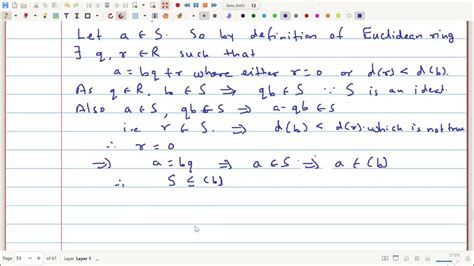 Let a ∈ S. So by definition of Euclidean ring
∃ q, r ∈ R such that
a = bq + r where either r = 0 or d(r) < d(b).
As q ∈ R, b ∈ S ⇒ qb ∈ S ∵ S is an ideal.
Also a ∈ S, qb ∈ S ⇒ a - qb ∈ S
i.e r ∈ S. ⇒ d(b) < d(r). which is not true
∴ r = 0
⇒ a = bq ⇒ a ∈ S ⇒ a ∈ (b)
∴ S ⊆ (b)
Page 53 of 61 Layer Layer 1